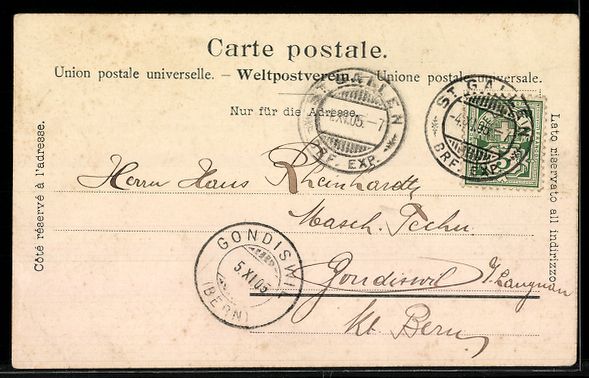 Carte postale.
Union postale universelle. — Weltpostverein. — Unione postale universale.
Nur für die Adresse.
Côté réservé à l'adresse.
Lato riservato all indirizzo.
ST. GALLEN
XI.05. - 7
BRF. EXP.
ST. GALLEN
-4.XI.05.
BRF. EXP.
Herrn Hans Rheinhardt,
Masch. Techn.
Gondiswil
Kt. Bern
GONDISWIL
5.XI.05
(BERN)